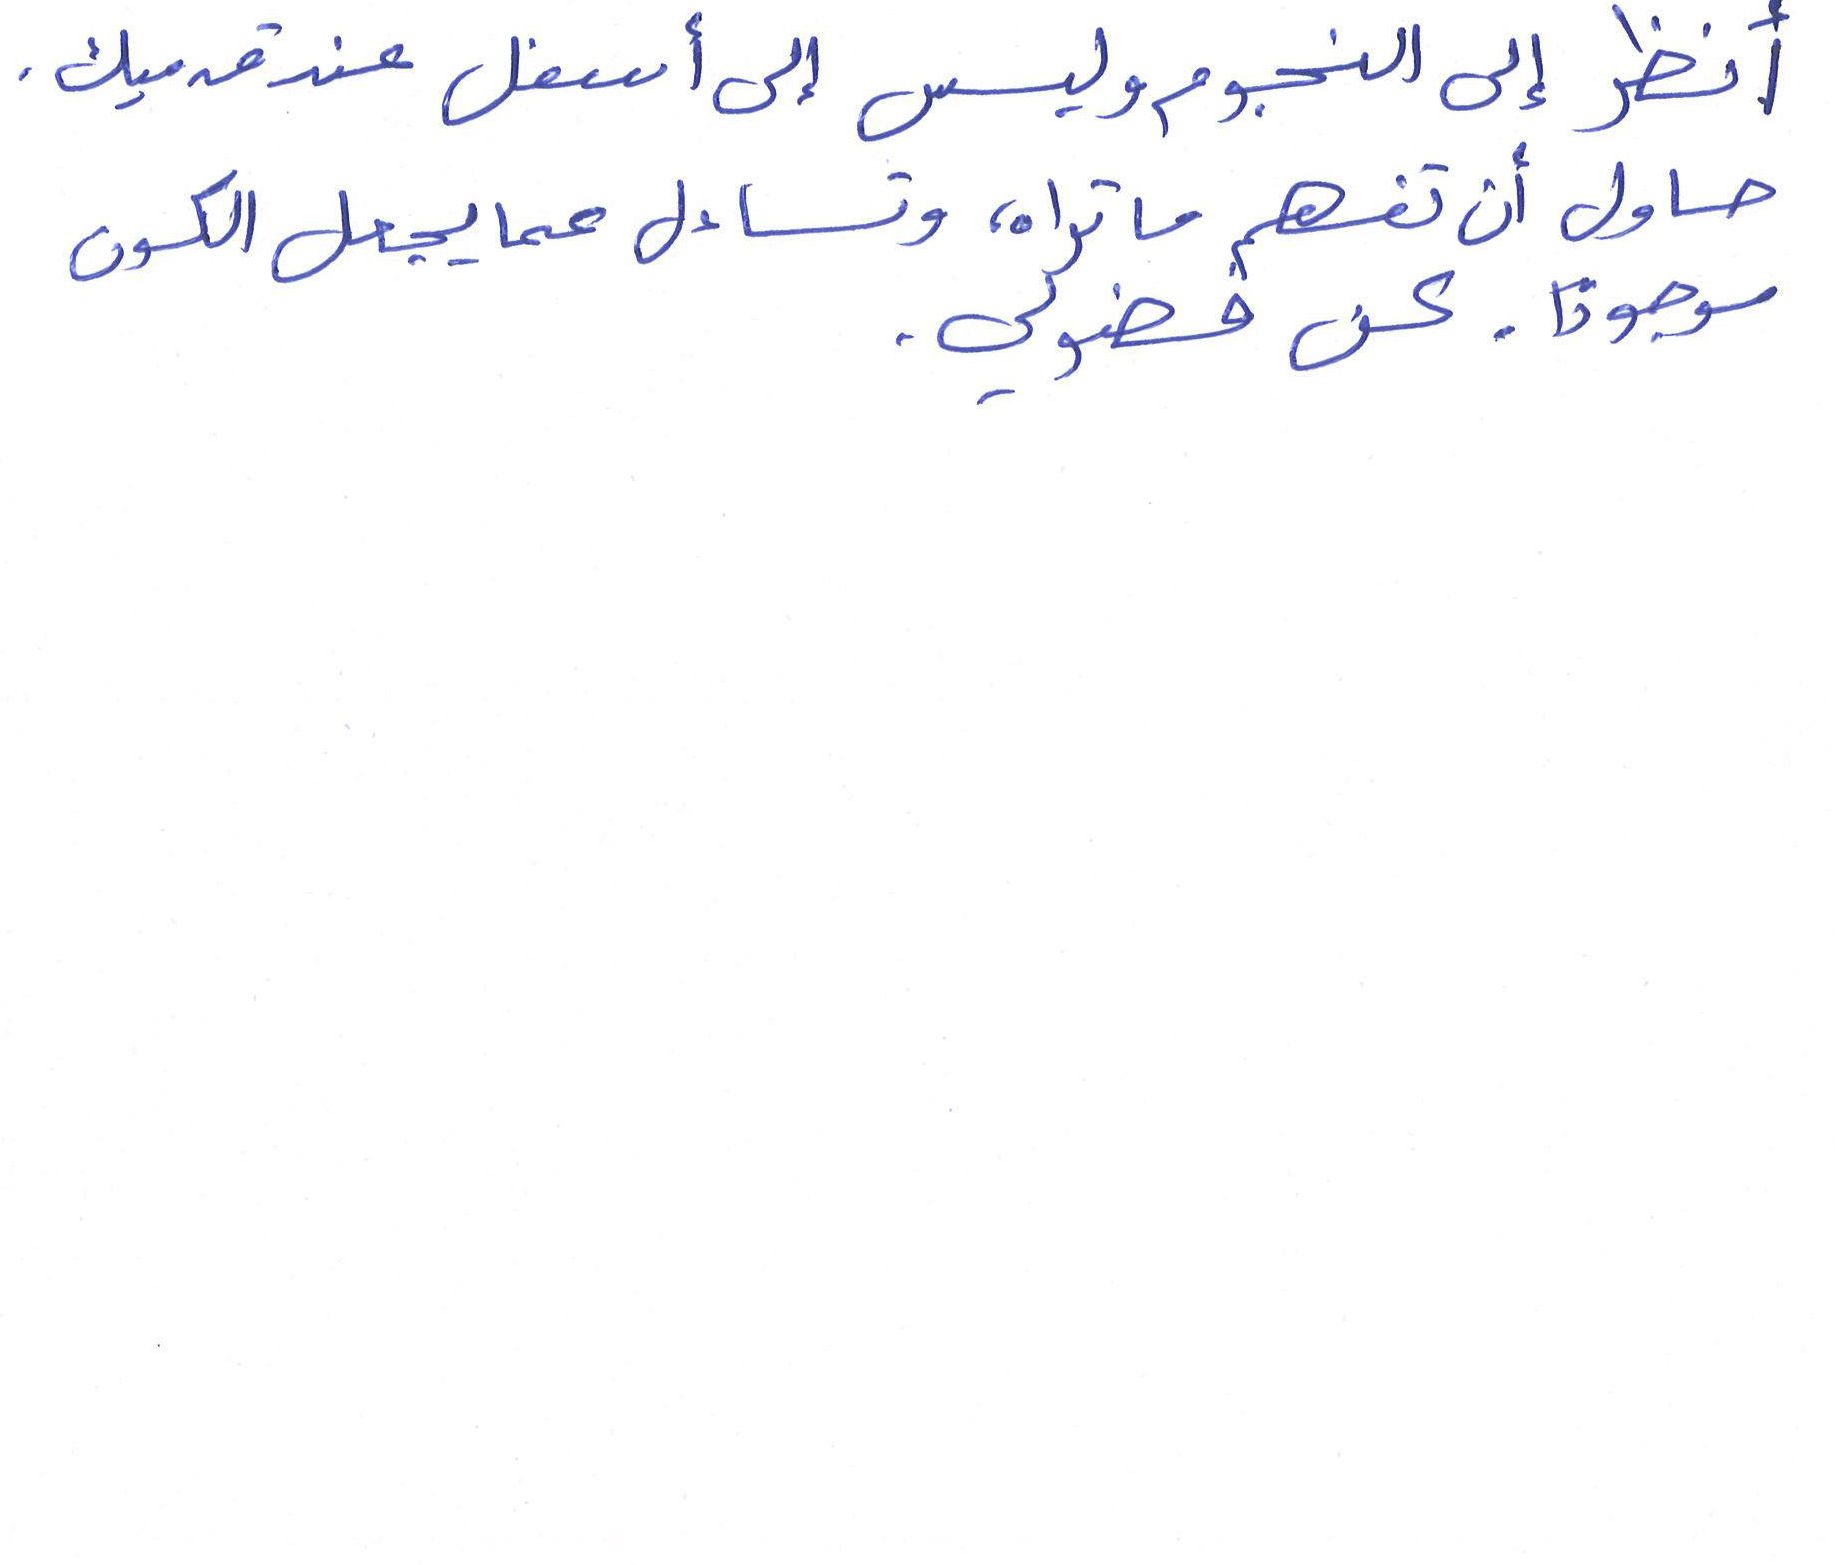 أنظر إلى النجوم وليس إلى أسفل عند قدميك.
حاول أن تفهم ما تراه، وتساءل عما يجعل الكون
موجودًا. كن فضولي.